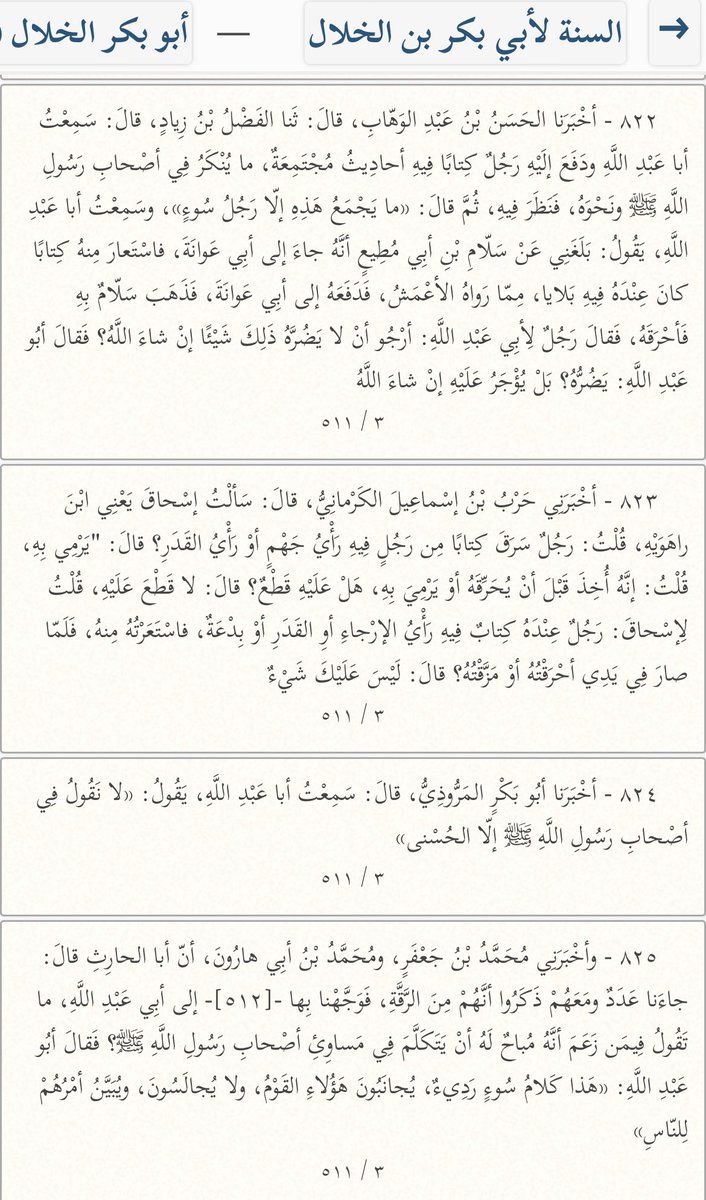 السنة لأبي بكر بن الخلال — أبو بكر الخلال
٨٢٢ - أخْبَرَنا الحَسَنُ بْنُ عَبْدِ الوَهّابِ، قالَ: ثَنا الفَضْلُ بْنُ زِيادٍ، قالَ: سَمِعْتُ
أبا عَبْدِ اللَّهِ ودَفَعَ إلَيْهِ رَجُلٌ كِتابًا فِيهِ أحادِيثُ مُجْتَمِعَةٌ، ما يُنْكَرُ فِي أصْحابِ رَسُولِ
اللَّهِ ﷺ ونَحْوَهُ، فَنَظَرَ فِيهِ، ثُمَّ قالَ: «ما يَجْمَعُ هَذِهِ إلّا رَجُلُ سُوءٍ»، وسَمِعْتُ أبا عَبْدِ
اللَّهِ، يَقُولُ: بَلَغَنِي عَنْ سَلّامِ بْنِ أبِي مُطِيعٍ أنَّهُ جاءَ إلى أبِي عَوانَةَ، فاسْتَعارَ مِنهُ كِتابًا
كانَ عِنْدَهُ فِيهِ بَلايا، مِمّا رَواهُ الأعْمَشُ، فَدَفَعَهُ إلى أبِي عَوانَةَ، فَذَهَبَ سَلّامٌ بِهِ
فَأحْرَقَهُ، فَقالَ رَجُلٌ لِأبِي عَبْدِ اللَّهِ: أرْجُو أنْ لا يَضُرَّهُ ذَلِكَ شَيْئًا إنْ شاءَ اللَّهُ؟ فَقالَ أبُو
عَبْدِ اللَّهِ: يَضُرُّهُ؟ بَلْ يُؤْجَرُ عَلَيْهِ إنْ شاءَ اللَّهُ
٣ / ٥١١
٨٢٣ - أخْبَرَنِي حَرْبُ بْنُ إسْماعِيلَ الكَرْمانِيُّ، قالَ: سَألْتُ إسْحاقَ يَعْنِي ابْنَ
راهَوَيْهِ، قُلْتُ: رَجُلٌ سَرَقَ كِتابًا مِن رَجُلٍ فِيهِ رَأْيُ جَهْمٍ أوْ رَأْيُ القَدَرِ؟ قالَ: "يَرْمِي بِهِ،
قُلْتُ: إنَّهُ أُخِذَ قَبْلَ أنْ يُحَرِّقَهُ أوْ يَرْمِيَ بِهِ، هَلْ عَلَيْهِ قَطْعٌ؟ قالَ: لا قَطْعَ عَلَيْهِ، قُلْتُ
لِإسْحاقَ: رَجُلٌ عِنْدَهُ كِتابٌ فِيهِ رَأْيُ الإرْجاءِ أوِ القَدَرِ أوْ بِدْعَةٌ، فاسْتَعَرْتُهُ مِنهُ، فَلَمّا
صارَ فِي يَدِي أحْرَقْتُهُ أوْ مَزَّقْتُهُ؟ قالَ: لَيْسَ عَلَيْكَ شَيْءٌ
٣ / ٥١١
٨٢٤ - أخْبَرَنا أبُو بَكْرٍ المَرُّوذِيُّ، قالَ: سَمِعْتُ أبا عَبْدِ اللَّهِ، يَقُولُ: «لا نَقُولُ فِي
أصْحابِ رَسُولِ اللَّهِ ﷺ إلّا الحُسْنى»
٣ / ٥١١
٨٢٥ - وأخْبَرَنِي مُحَمَّدُ بْنُ جَعْفَرٍ، ومُحَمَّدُ بْنُ أبِي هارُونَ، أنّ أبا الحارِثِ قالَ:
جاءَنا عَدَدٌ ومَعَهُمْ ذَكَرُوا أنَّهُمْ مِنَ الرَّقَّةِ، فَوَجَّهْنا بِها -[٥١٢]- إلى أبِي عَبْدِ اللَّهِ، ما
تَقُولُ فِيمَن زَعَمَ أنَّهُ مُباحٌ لَهُ أنْ يَتَكَلَّمَ فِي مَساوِئِ أصْحابِ رَسُولِ اللَّهِ ﷺ؟ فَقالَ أبُو
عَبْدِ اللَّهِ: «هَذا كَلامُ سُوءٍ رَدِيءٌ، يُجانَبُونَ هَؤُلاءِ القَوْمُ، ولا يُجالَسُونَ، ويُبَيَّنُ أمْرُهُمْ
لِلنّاسِ»
٣ / ٥١١